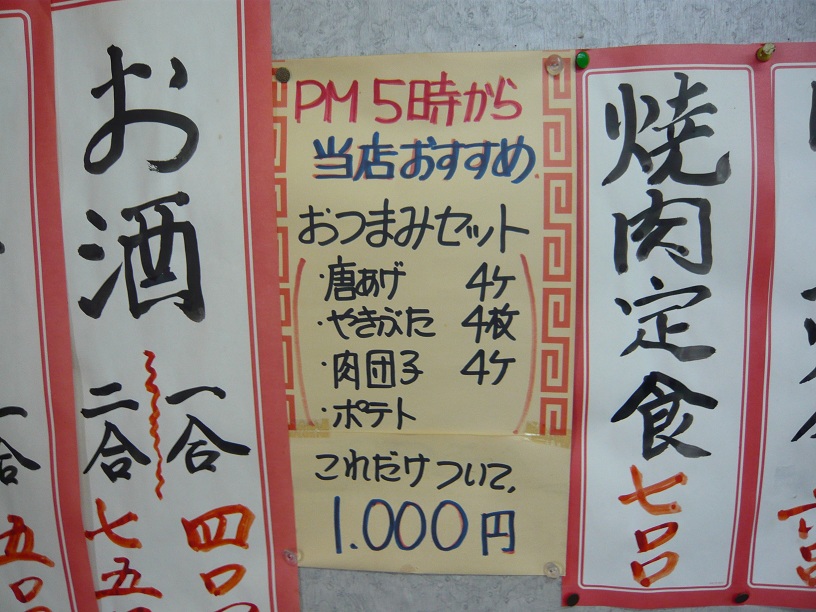 お酒
一合
四〇
二合
七五
PM5時から
当店おすすめ.
おつまみセット
・唐あげ 4ケ
・やきぶた 4枚
・肉団子 4ケ
・ポテト
これだけついて.
1.000円
焼肉定食
七〇〇